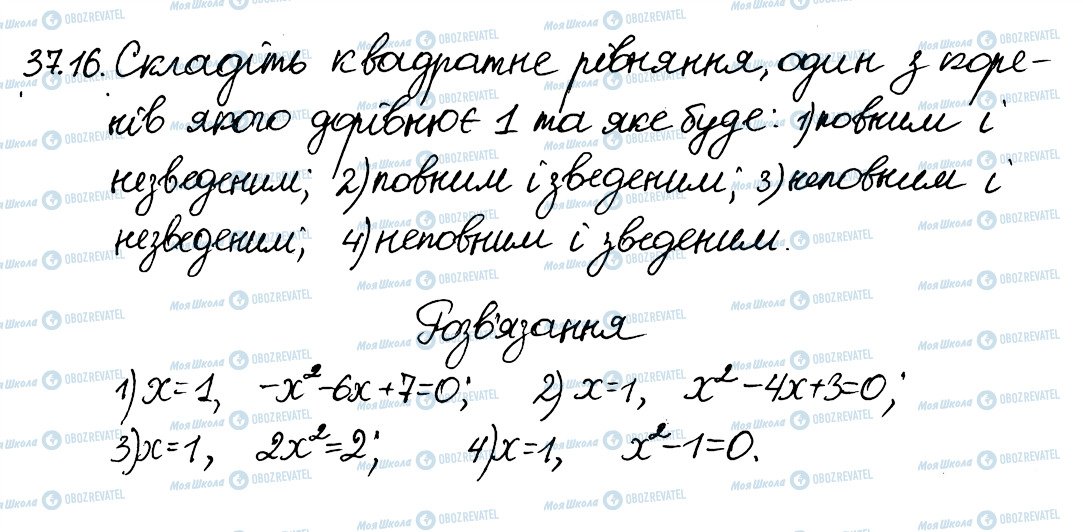 37.16. Складіть квадратне рівняння, один з коре-
нів якого дорівнює 1 та яке буде: 1) повним і
незведеним; 2) повним і зведеним; 3) неповним і
незведеним; 4) неповним і зведеним.
Розв'язання
1) x = 1, -x² - 6x + 7 = 0; 2) x = 1, x² - 4x + 3 = 0;
3) x = 1, 2x² = 2; 4) x = 1, x² - 1 = 0.
МОЯ ШКОЛА OBOZREVATEL